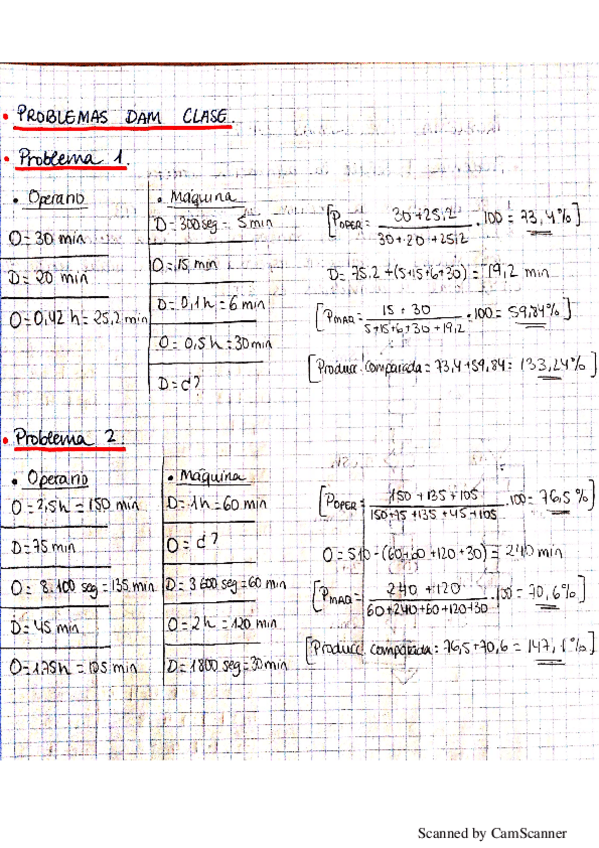 • PROBLEMAS DAM CLASE.
• Problema 1.
• Operario
O = 30 min
D = 20 min
O = 0,42 h = 25,2 min
• Máquina
D = 300 seg = 5 min
O = 15 min
D = 0,1 h = 6 min
O = 0,5 h = 30 min
D = d?
[P OPER = 30 + 25,2 / 30 + 20 + 25,2 . 100 = 73,4 %]
D = 75,2 - (5+15+6+30) = 19,2 min
[P MAQ = 15 + 30 / 5+15+6+30+19,2 . 100 = 59,84 %]
[Producc. comparada = 73,4 + 59,84 = 133,24 %]
• Problema 2.
• Operario
O = 2,5h = 150 min
D = 75 min
O = 8.100 seg = 135 min
D = 45 min
O = 1,75 h = 105 min
• Máquina
D = 1h = 60 min
O = d?
D = 3600 seg = 60 min
O = 2h = 120 min
D = 1800 seg = 30 min
[P OPER = 150 + 135 + 105 / 150+75+135+45+105 . 100 = 76,5 %]
O = 510 - (60+60+120+30) = 240 min
[P MAQ = 240 + 120 / 60+240+60+120+30 . 100 = 70,6 %]
[Producc. comparada: 76,5 + 70,6 = 147,1 %]
Scanned by CamScanner